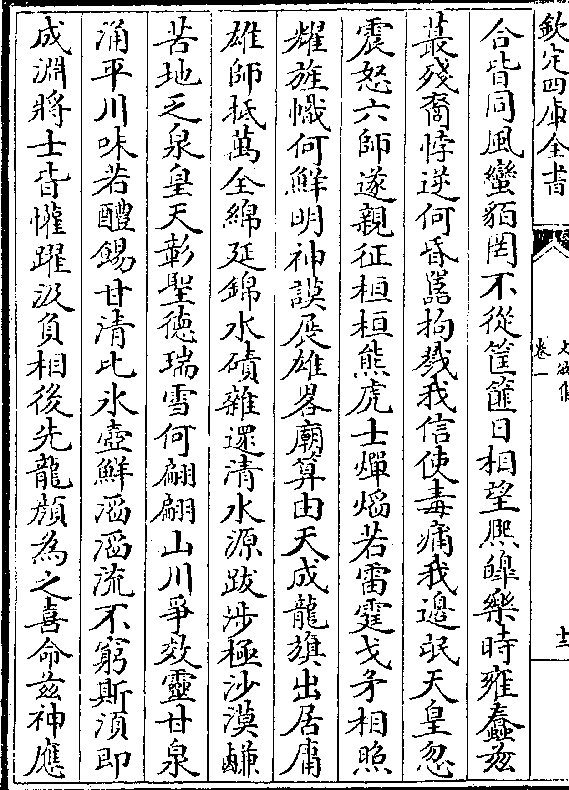 欽定四庫全書
卷一
合皆同風蠻貊罔不從筐篚日相望熙皡樂時雍蠢兹
蕞殘裔悖逆何昏嚚拘戮我信使毒痡我邉氓天皇忽
震怒六師遂親征桓桓熊虎士燀焰若雷霆戈矛相照
耀旌幟何鮮明神謨展雄畧廟算由天成龍旗出居庸
雄師抵萬全綿延錦水磧雜還清水源跋渉極沙漠鹻
苦地乏泉皇天彰聖德瑞雪何翩翩山川爭效靈甘泉
湧平川味若醴錫甘清比氷壺鮮滔滔流不窮斯湏即
成淵將士皆懽躍汲負相後先龍顔為之喜命兹神應